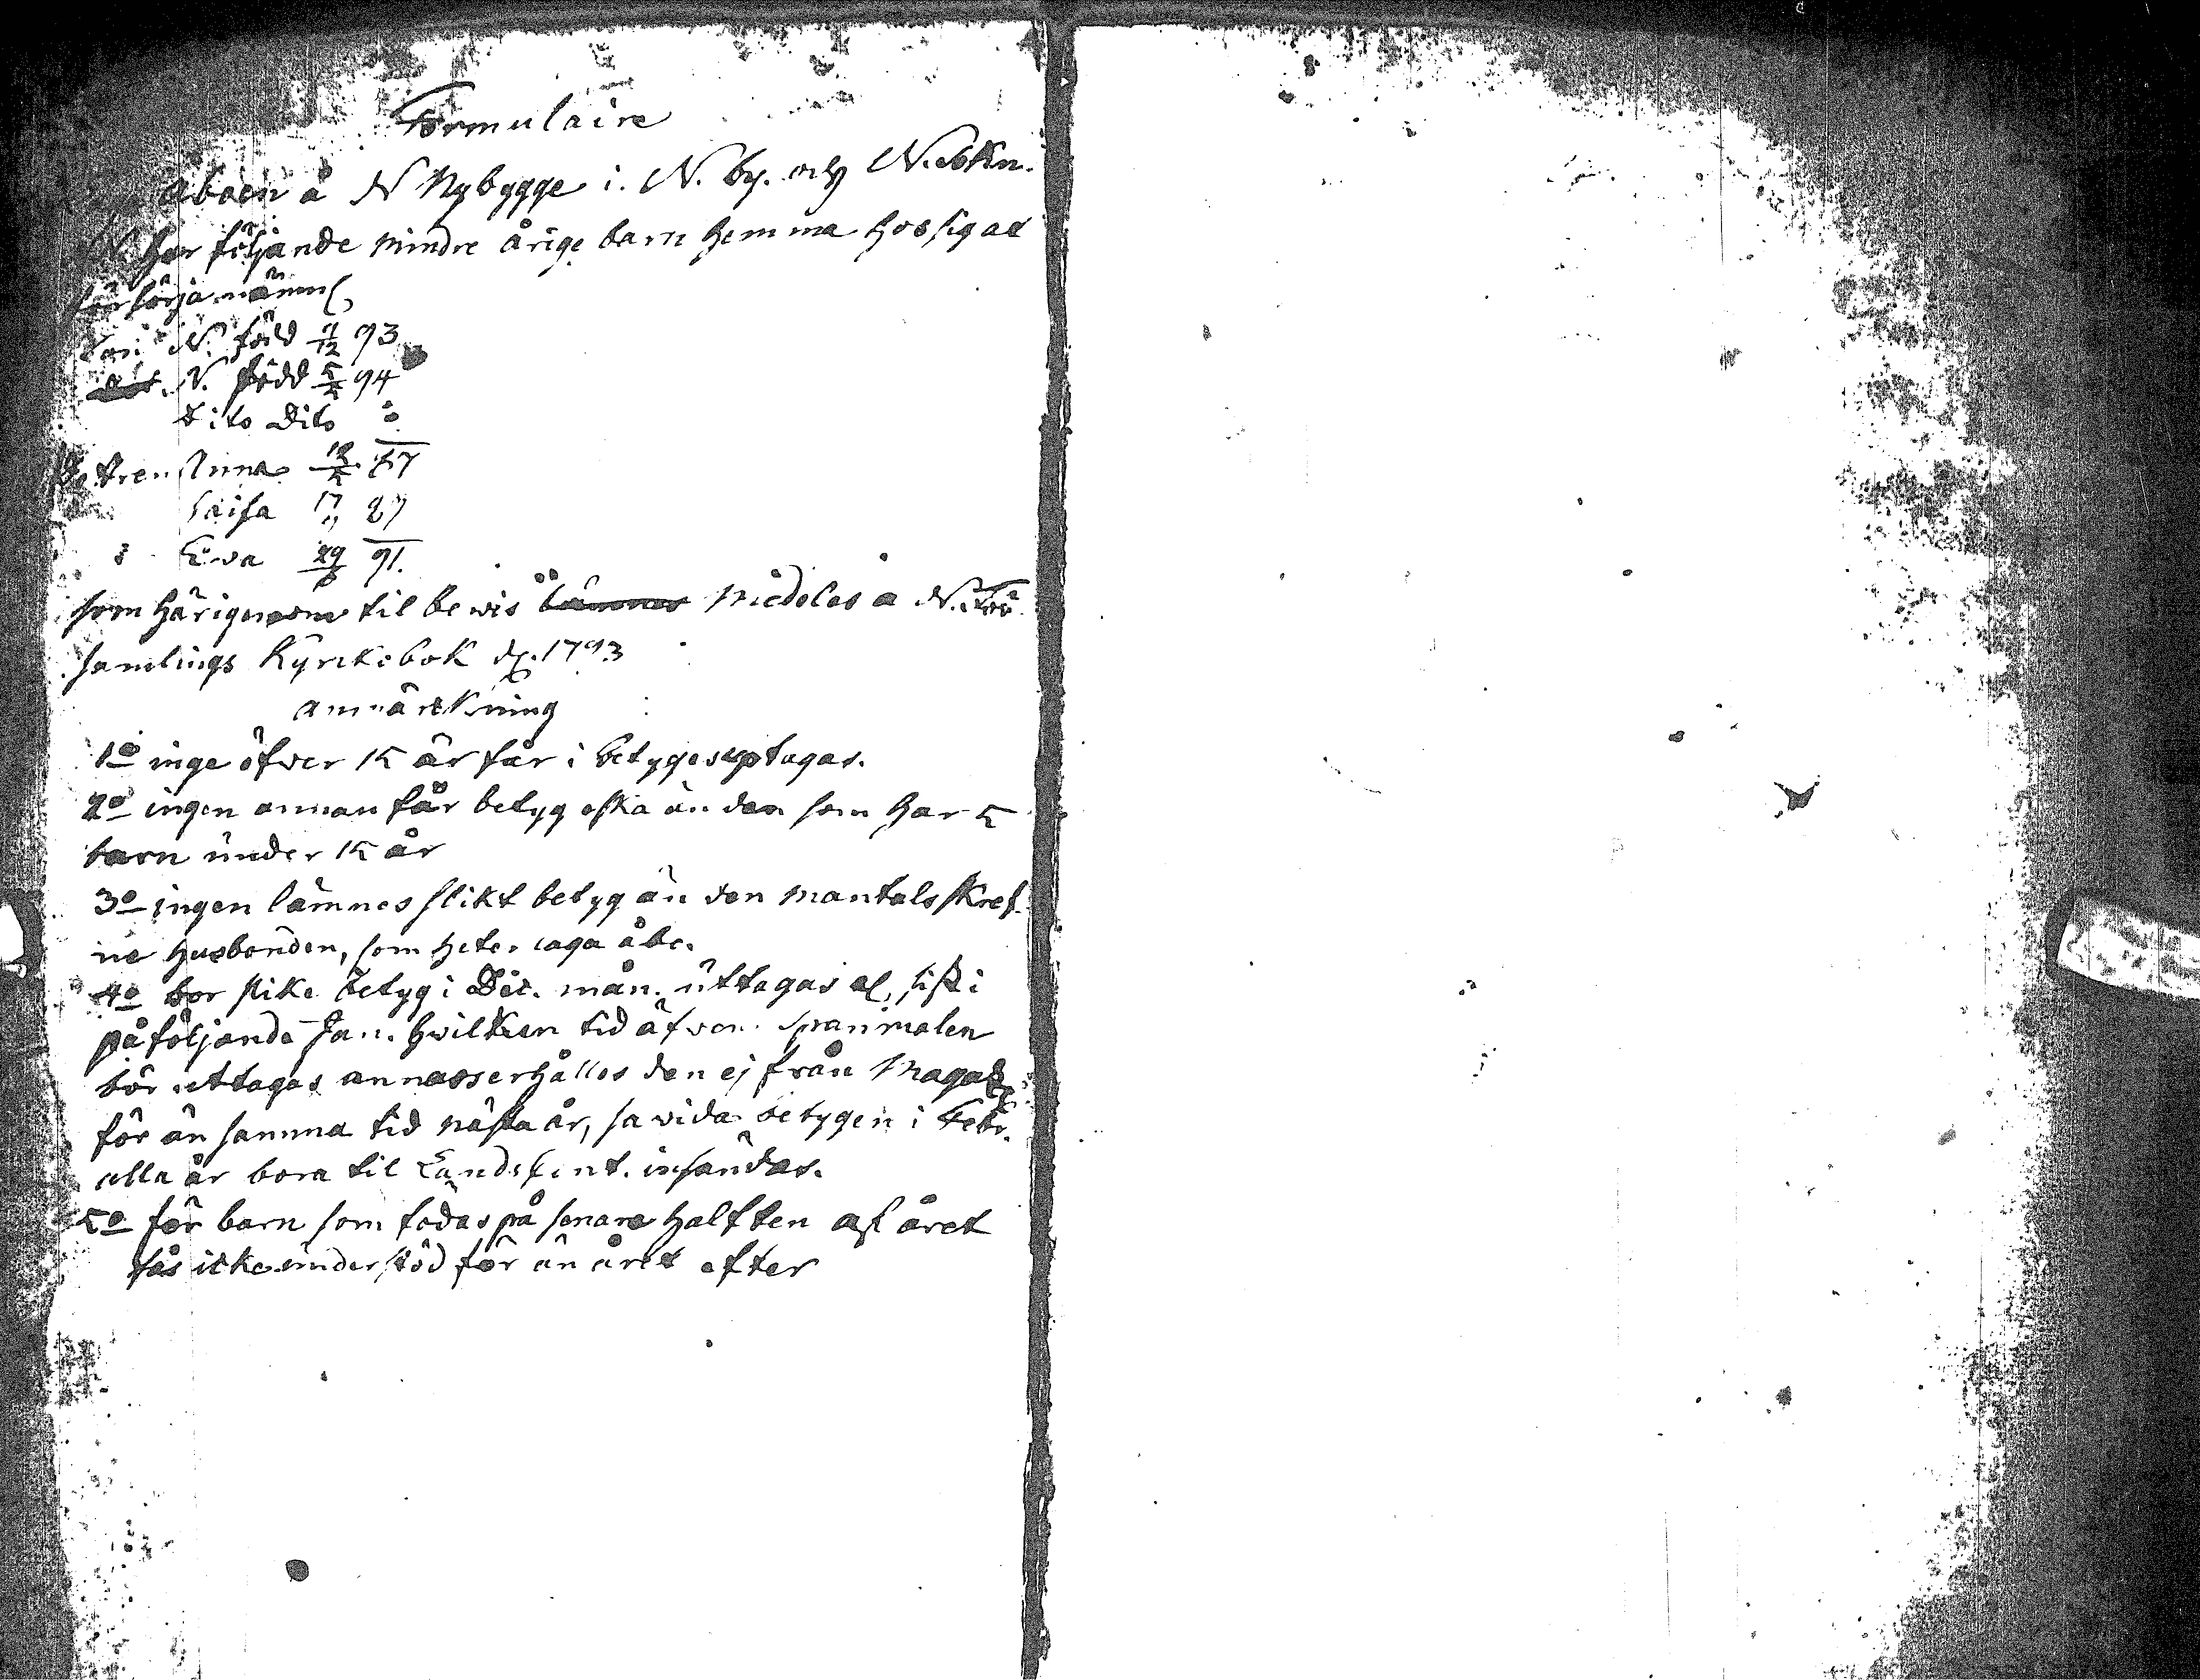 Formulaire
åboen å N Nybygge i. N. by. och N. Sokn.
har följande mindre årige barn hemma hos sig at
försörja nämnl.
N. föd 93
N. född 5/2 94
Dito Dito
Dottren Anna 87
Caisa 17 87
Ewa 29 91.
som härigenom til bewis lämnas medelas å N. För
samlings Kyrckobok d. 1793
anmärckning
1o inge öfwer 15 år får i betyges uptagas.
2o ingen annan får betyg äska än den som har 5
barn under 15 år
3o ingen lämnes slikt betyg än den mantals skref
ne husbonden, som heter åbo.
4o bör slike betyg i Dec. mån. uttagas el. sist i
påföljande Jan. hwilken tid äfwen Spanmålen
bör uttagas annars erhålles den ej från Magaz
för än samma tid nästa år, så wida betygen i Febr.
alla år böra til Landscont. insändas.
5o för barn som födas på senare halften af året
fås icke understöd för än året efter